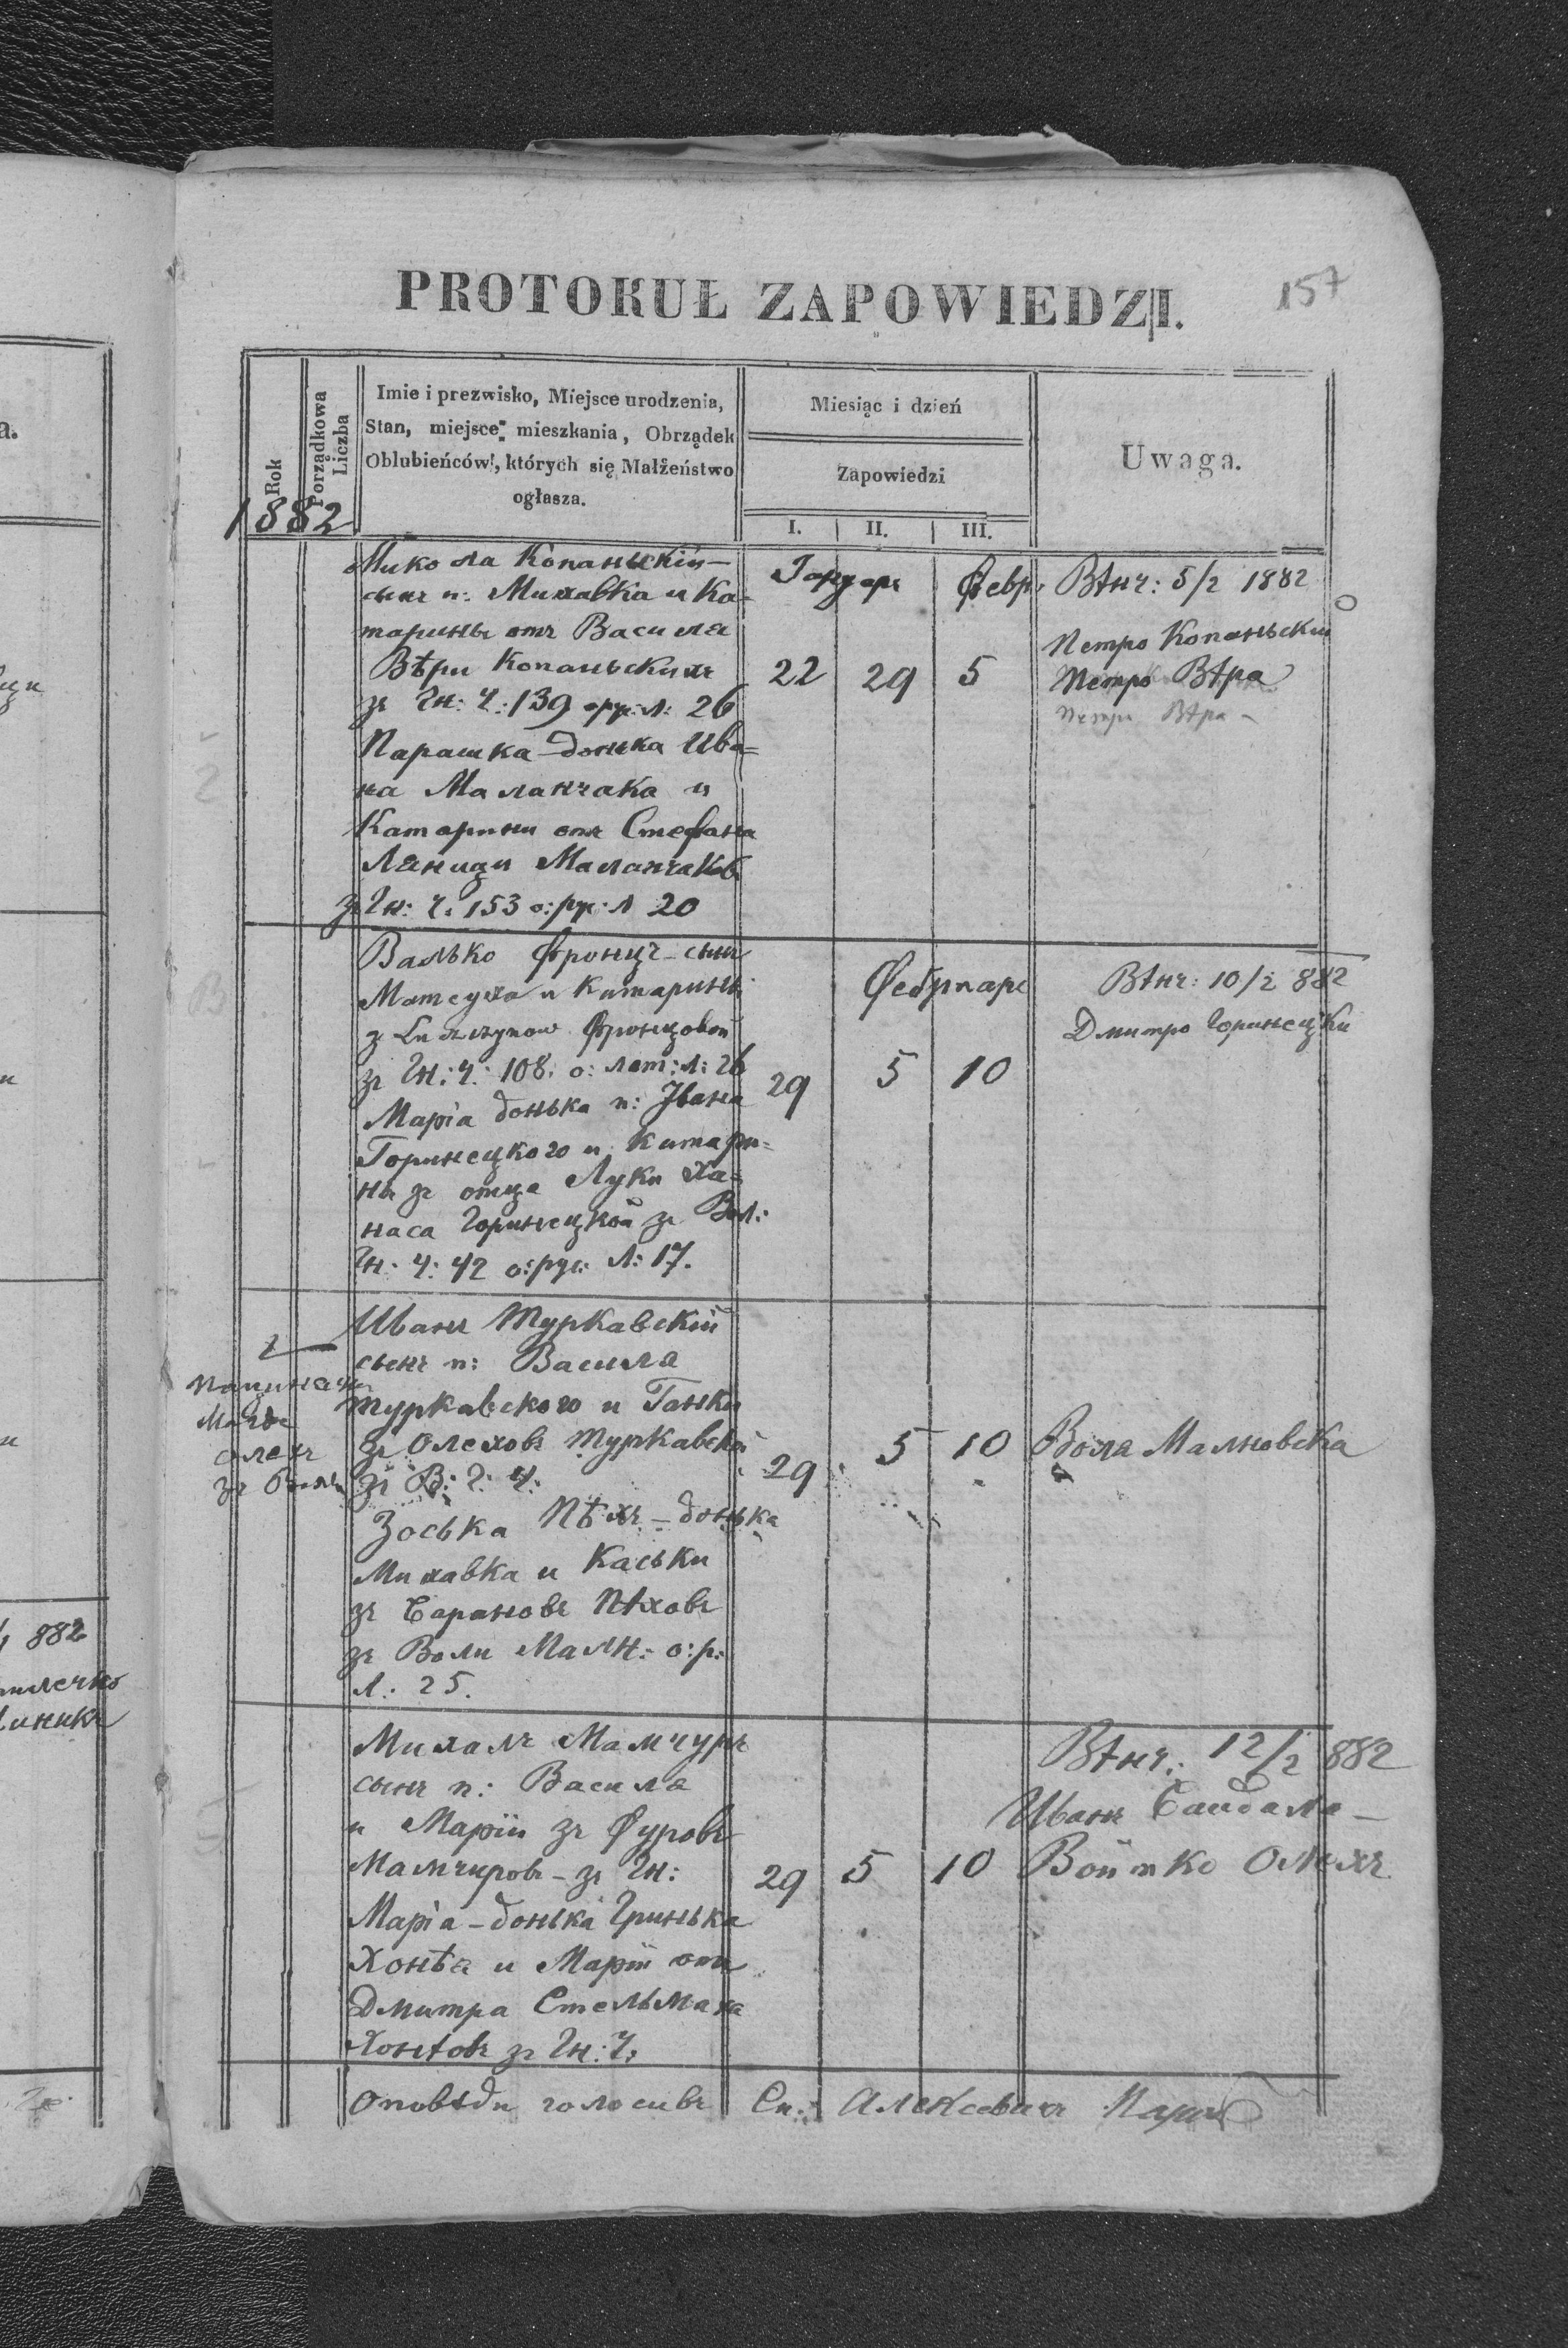 157
PROTOKUŁ ZAPOWIEDZI.
Rok
Porządkowa Liczba
Imie i prezwisko, Miejsce urodzenia,
Stan, miejsce mieszkania, Obrządek
Oblubieńców, których się Małżeństwo
ogłasza.
Miesiąc i dzień
Zapowiedzi
I. II. III.
Uwaga.
1882
Микола Копаньскій—
сынъ п: Михавка и Ка-
тарины отъ Василя
Вѣри Копаньскихъ
зъ Гн: Ч: 139 о: рус: л: 26
Парашка донька Ива=
на Маланчака и
Катарини отъ Стефана
Ляници Маланчаковъ
зъ Гн: Ч. 153 о: рус: л 20
Януаръ Февр:
22 29 5
Вѣнч: 5/2 1882
Петро Копаньскій
Петро Вѣра
Петро Вѣра
Валько Фронцъ – сынъ
Матеуха и Катарины
з Фронцовой
зъ Гн: Ч: 108. о: лат: л: 26
Марія донька п: Івана
Горинецкого и Катари=
ны зъ отца Луки Ха=
наса Горинецкой зъ Вол:
Гн: Ч: 42 о: рус: л: 17.
Фебруаръ
29 5 10
Вѣнч: 10/2 882
Дмитро Горинецки
Иванъ Туркавскій
сынъ п: Василя
Туркавского и Ганки
зъ Олеховъ Туркавской
зъ В: Г: Ч:
Зоська Пѣхъ – донька
Михавка и Каськи
зъ Барановъ Пѣховъ
зъ Воли Малн: о: р:
л: 25.
Олехъ
29 5 10
Воля Малновска
Михалъ Мамчуръ
сынъ п: Василя
и Маріи зъ Фуровъ
Мамчуровъ – зъ Гн:
Марія – донька Гринька
Хонѣа и Маріи отъ
Дмитра Стельмаха
Хонѣовъ зъ Гн: Ч:
29 5 10
Вѣнч: 12/2 882
Иванъ Байдала –
Войтко Олехъ
Оповѣди голосивъ Алексевичъ